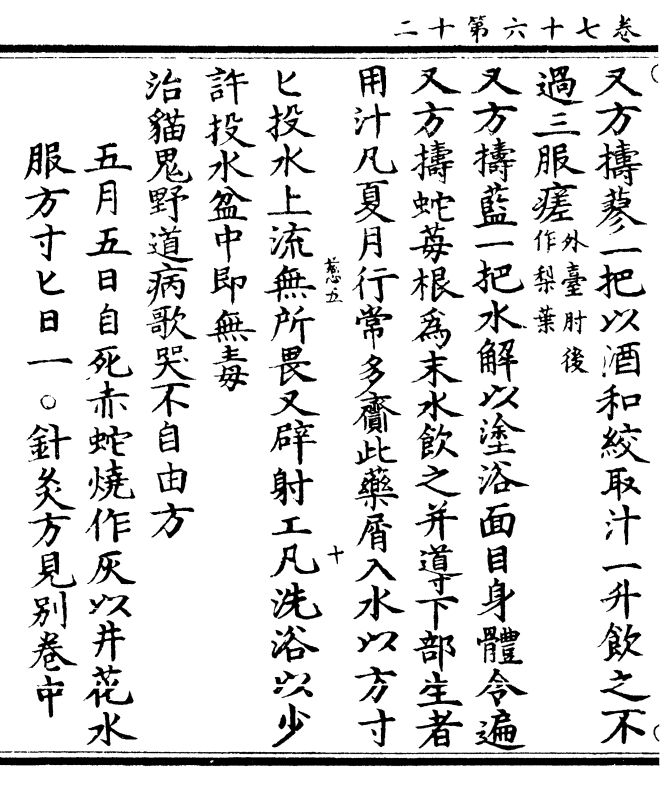 卷七十六第十二
又方擣蓼一把以酒和絞取汁一升飲之不
過三服瘥外臺肘後作梨葉
又方擣藍一把水解以塗浴面目身體令遍
又方擣蛇莓根爲末水飲之并導下部生者
用汁凡夏月行常多齎此藥屑入水以方寸
匕投水上流無所畏又辟射工凡洗浴以少
許投水盆中即無毒
治貓鬼野道病歌哭不自由方
五月五日自死赤蛇燒作灰以井花水
服方寸匕日一○針灸方見別卷中